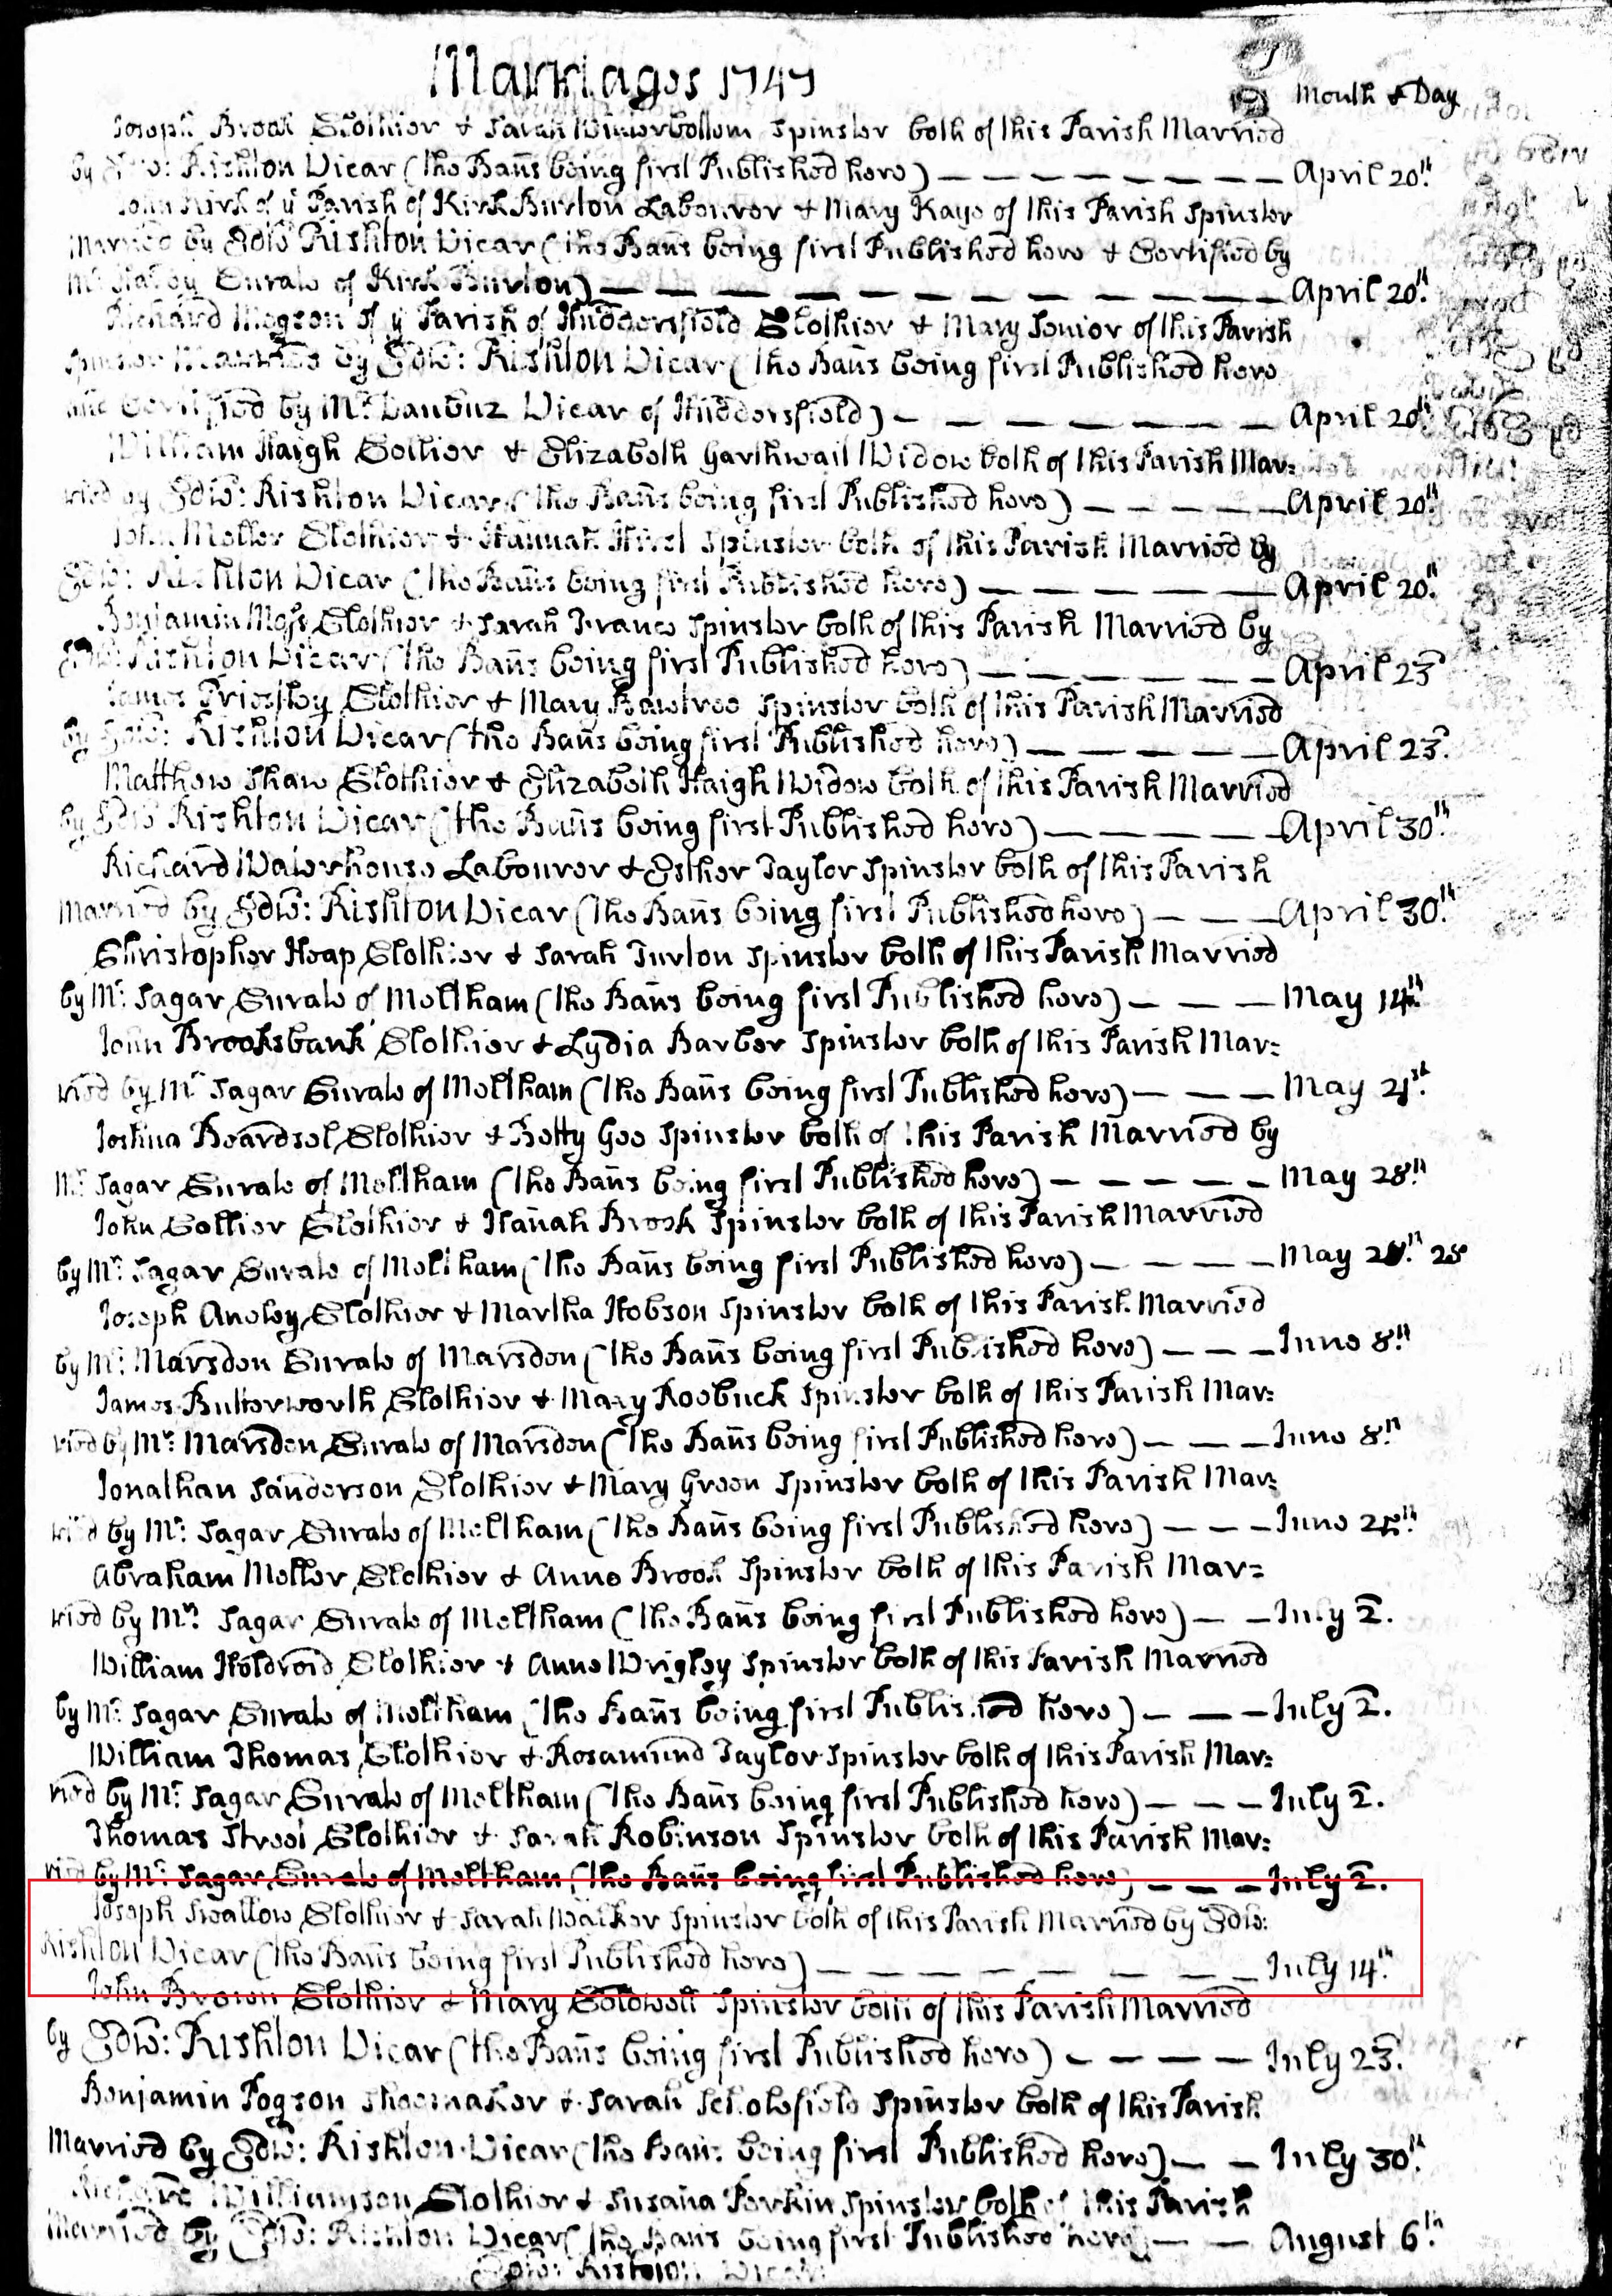 Marriages 1747
Month & Day
Joseph Brook Clothier & Sarah Winterbottom Spinster both of this Parish Married
by Edw: Rishton Vicar (the Bañs being first Published here) — — — — — — — — April 20th.
John Kirk of ye Parish of Kirk Burton Labourer & Mary Kaye of this Parish Spinster
Married by Edw: Rishton Vicar (the Bañs being first Published here & Certified by
Mr. Curate of Kirk Burton) — — — — — — — — — — — — April 20th.
Richard Mogson of ye Parish of Huddersfield Clothier & Mary Senior of this Parish
Spinster Married by Edw: Rishton Vicar (the Bañs being first Published here
and Certified by Mr. Vicar of Huddersfield) — — — — — — — April 20th.
William Haigh Collier & Elizabeth Garthwait Widow both of this Parish Mar:
ried by Edw: Rishton Vicar (the Bañs being first Published here) — — — — — April 20th.
John Mellor Clothier & Hannah Hirst Spinster both of this Parish Married by
Edw: Rishton Vicar (the Bañs being first Published here) — — — — — — April 20th.
Benjamin Moss Clothier & Sarah France Spinster both of this Parish Married by
Edw: Rishton Vicar (the Bañs being first Published here) — — — — — — April 23d
James Priestley Clothier & Mary Rawtree Spinster both of this Parish Married
by Edw: Rishton Vicar (the Bañs being first Published here) — — — — — April 23d.
Matthew Shaw Clothier & Elizabeth Haigh Widow both of this Parish Married
by Edw Rishton Vicar (the Bañs being first Published here) — — — — — April 30th.
Richard Waterhouse Labourer & Esther Taylor Spinster both of this Parish
Married by Edw: Rishton Vicar (the Bañs being first Published here) — — — April 30th.
Christopher Heap Clothier & Sarah Turton Spinster both of this Parish Married
by Mr. Sagar Curate of Meltham (the Bañs being first Published here) — — — May 14th.
John Brooksbank Clothier & Lydia Barber Spinster both of this Parish Mar:
ried by Mr Sagar Curate of Meltham (the Bañs being first Published here) — — — May 21st.
Joshua Beardsel Clothier & Betty Gee Spinster both of this Parish Married by
Mr. Sagar Curate of Meltham (the Bañs being first Published here) — — — — — May 28th.
John Collier Clothier & Hañah Brook Spinster both of this Parish Married
by Mr. Sagar Curate of Meltham (the Bañs being first Published here) — — — — May 28th. 28
Joseph Aneley Clothier & Martha Hobson Spinster both of this Parish Married
by Mr. Marsden Curate of Marsden (the Bañs being first Published here) — — — June 8th.
James Butterworth Clothier & Mary Roebuck Spinster both of this Parish Mar:
ried by Mr. Marsden Curate of Marsden (the Bañs being first Published here) — — — June 8th.
Jonathan Sanderson Clothier & Mary Green Spinster both of this Parish Mar:
ried by Mr. Sagar Curate of Meltham (the Bañs being first Published here) — — — June
Abraham Mellor Clothier & Anne Brook Spinster both of this Parish Mar=
ried by Mr. Sagar Curate of Meltham (the Bañs being first Published here) — — July 2d.
William Holdroid Clothier & Anne Wrigley Spinster both of this Parish Married
by Mr. Sagar Curate of Meltham (the Bañs being first Published here) — — — July 2d.
William Thomas Clothier & Rosamund Taylor Spinster both of this Parish Mar:
ried by Mr. Sagar Curate of Meltham (the Bañs being first Published here) — — — July 2d.
Thomas Clothier & Sarah Robinson Spinster both of this Parish Mar:
ried by Mr. Sagar Curate of Meltham (the Bañs being first Published here) — — — July 2d.
Joseph Swallow Clothier & Sarah Walker Spinster both of this Parish Married by Edw:
Rishton Vicar (the Bañs being first Published here) — — — — — — — — July 14th.
John Brown Clothier & Mary Coldwell Spinster both of this Parish Married
by Edw: Rishton Vicar (the Bañs being first Published here) — — — — July 23d.
Benjamin Pogson Shoemaker & Sarah Scholefield Spinster both of this Parish
Married by Edw: Rishton Vicar (the Bañs being first Published here) — — July 30th.
Richard Williamson Clothier & Susaña Perkin Spinster both of this Parish
Married by Edw: Rishton Vicar (the Bañs being first Published here) — — August 6th.
Edw: Rishton Vicar